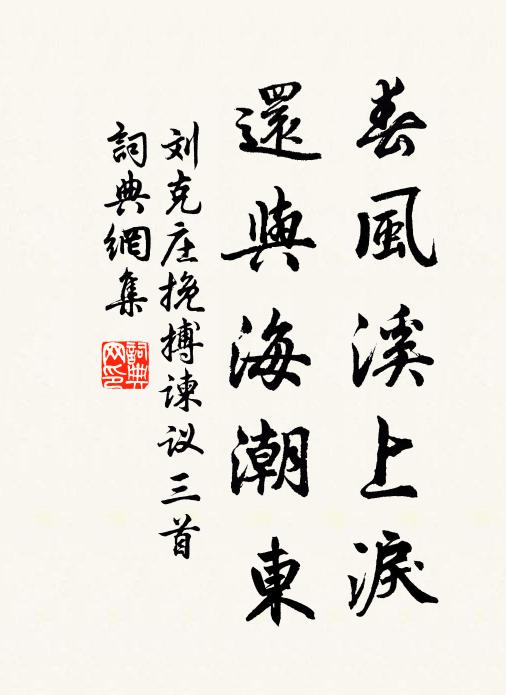 春風溪上淚
還與海潮東
刘克庄挽搏谏议三首
詞典網集
詞典网印